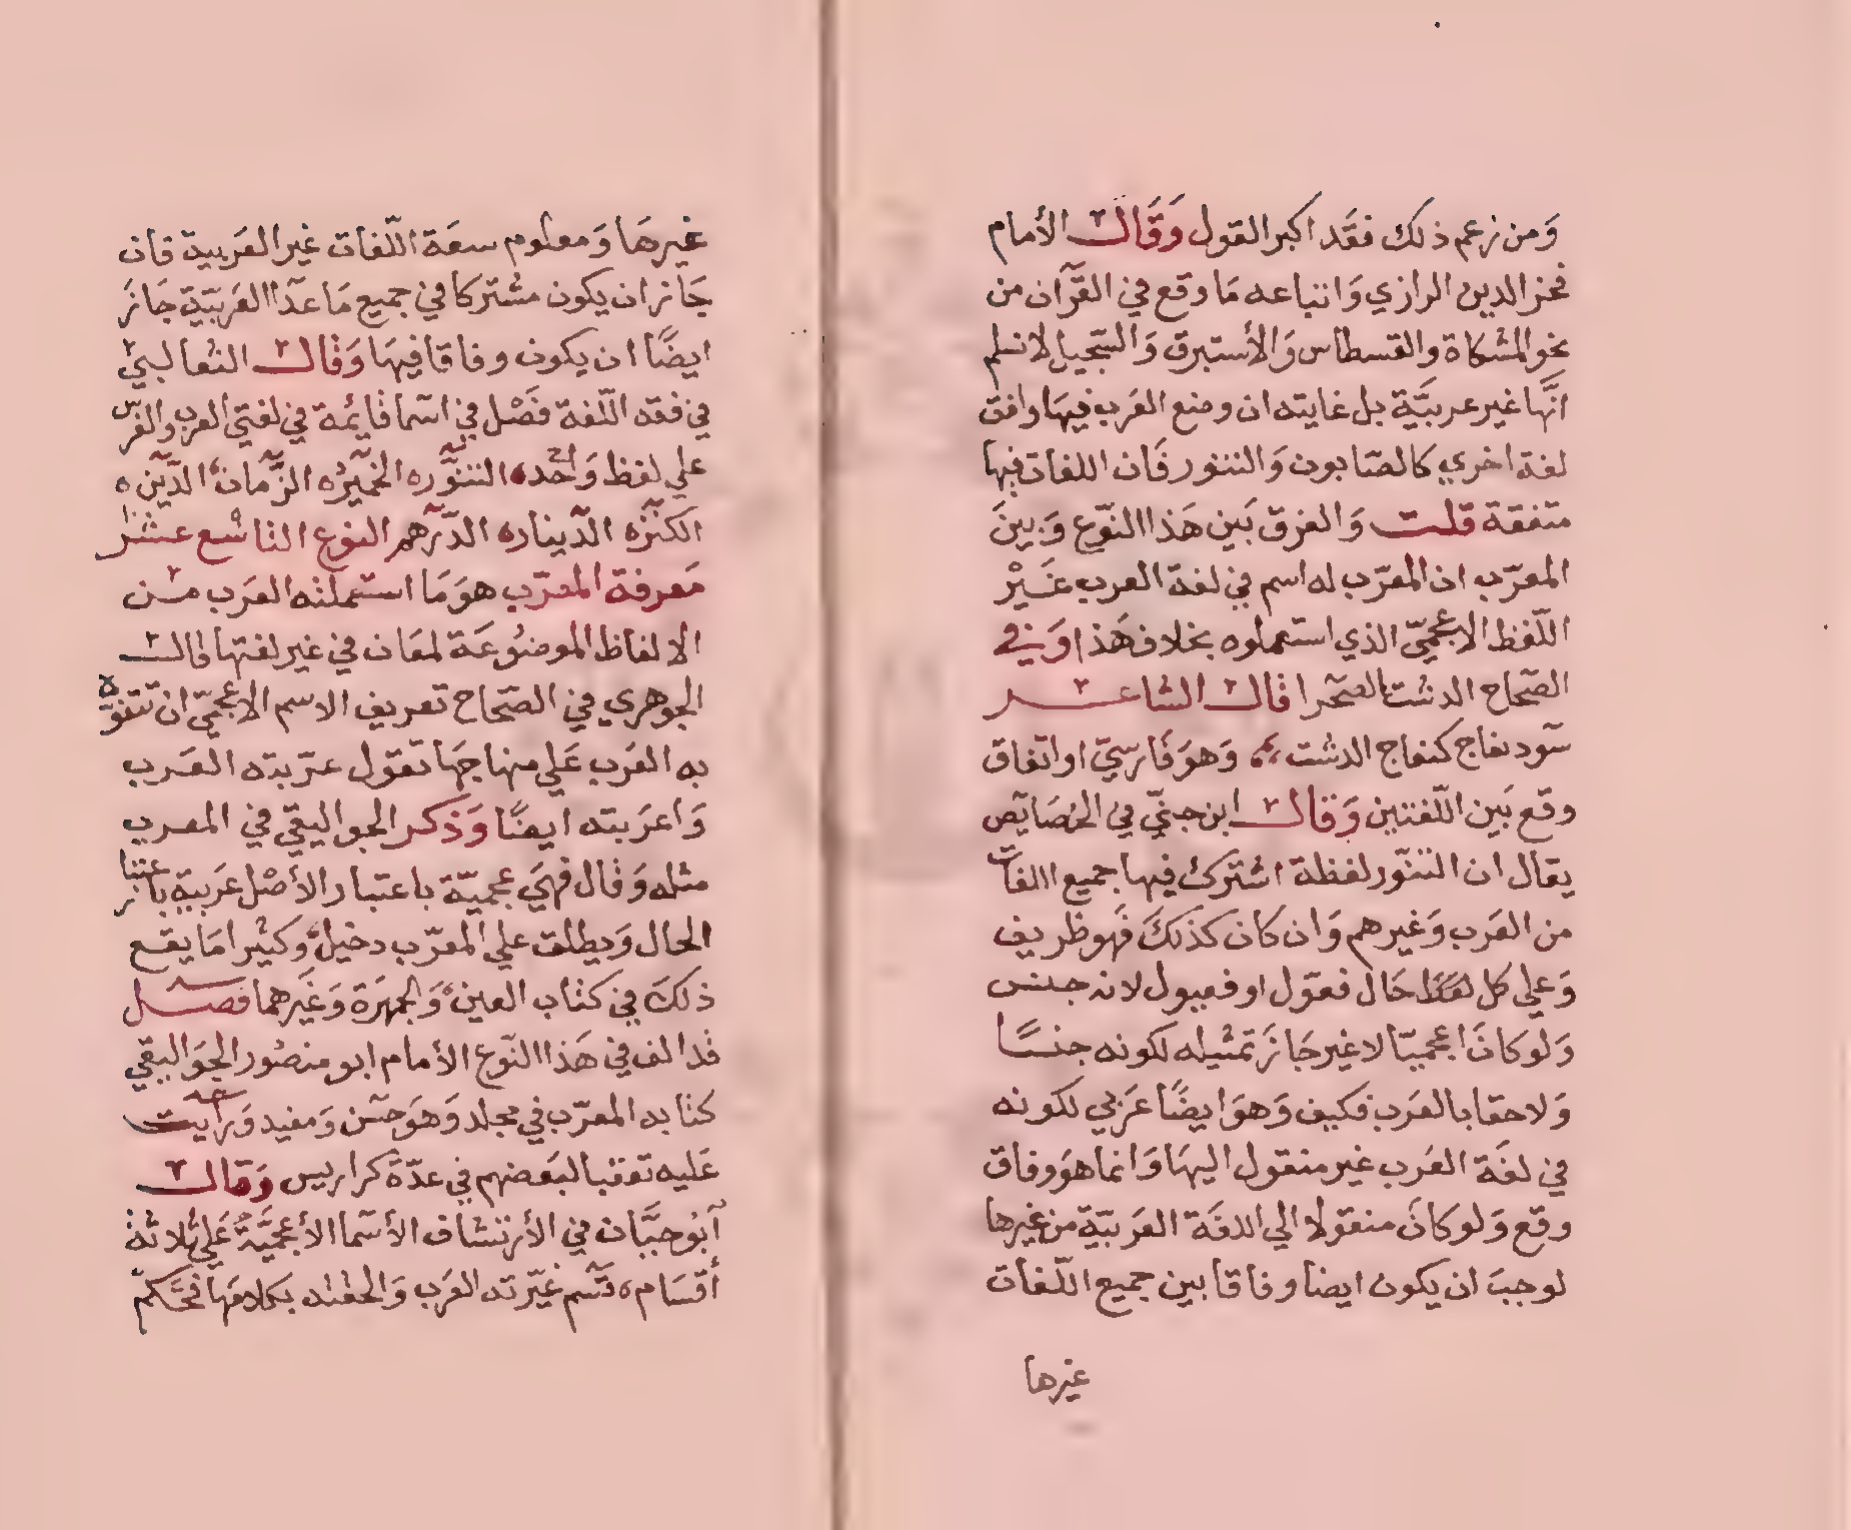 وَمن زعم ذلك فقَد اكبر القول وَقَال الأمام
فخر الدين الرازي وَاتباعه مَا وقع في القرآن من
نحو المشكاة والقسطاس وَالأستبرق وَالسّجيل لا نسلم
انّها غير عربيَّة بل غايته ان وضع العَرب فيهَا وافق
لغة اخري كالصّابون وَالتنور فَان اللغات فيها
متفقة قلت وَالفرق بَين هَذا النّوع وَبينَ
المعرّب ان المعرّب له اسم في لغة العرب غَيْر
اللّفظ الاعجميّ الذي استعملوه بخلاف هَذا وَفي
الصّحاح الدشت الصّحرا قال الشاعر
سود نعاج كنعاج الدشت وَهوَ فَارسيّ او اتفاق
وقع بَين اللّغتين وَقال ابن جنيّ في الخصَايٓص
يقال ان التنّور لفظة اشترك فيها جميع اللغات
من العَرب وَغيرهم وَان كان كذلكَ فَهو ظريف
وَعلي كل حَال فعّول او فعنول لانه جنس
وَلو كانَ اعجميّا لا غير جَازَ تمثيله لكونه جنسًا
وَلاحقا بالعَرب فكيف وَهوَ ايضًا عَربي لكونه
في لغَة العَرب غير منقول اليهَا وَانما هوَ وفاق
وقع وَلو كانَ منقولا الي اللغَة العَربيّة من غيرها
لوجبَ ان يكون ايضا وفاقا بين جميع اللّغات
غيرها
غيرهَا وَمعلوم سعَة اللّغات غير العَربية فان
جَاز ان يكون مشتركا في جميع مَا عدَا العَربيّة جَازَ
ايضًا ان يكون وفاقا فيهَا وَقال الثعالبي
في فقه اللّغة فَصْل في اسما قائمة في لغتي العرب والفرس
علي لفظ وَاحد التنّوره الخميّره الزّمان الدّين ه
الكَنزه الدّيناره الدّرهم النوع التاسع عشر
مَعرفة المعَرّب هوَ مَا استعملته العَرب من
الالفاظ الموضوعَة لمعَان في غير لغتها قال
الجوهري في الصّحاح تعريف الاسم الاعجميّ ان تتفوّه
به العَرب عَلي منهاجهَا تقول عرّبته العَرب
وَاعرَبته ايضًا وَذكر الجواليقي في المعرب
مثله وَقال فهيَ عجميّة باعتبار الأصْل عَربية باعتبار
الحال وَيطلق علي المعرّب دخيل وكثيرا مَا يقع
ذلكَ في كتاب العين وَالجمهَرَة وَغيرهما فصل
قد الف في هَذا النّوع الأمام ابو منصُور الجوَاليقي
كتابه المعرّب في مجلد وَهوَ حسَن وَمفيد وَرَأيت
عَليه تعقبا لبَعضهم في عدّة كراريس وَقال
آبُو حيَّان في الأرتشاف الأسمَا الأعجميَّةُ عَلي ثلاثة
أقسَام ه قسم غيّرته العَرب وَالحقته بكلامهَا فحكم